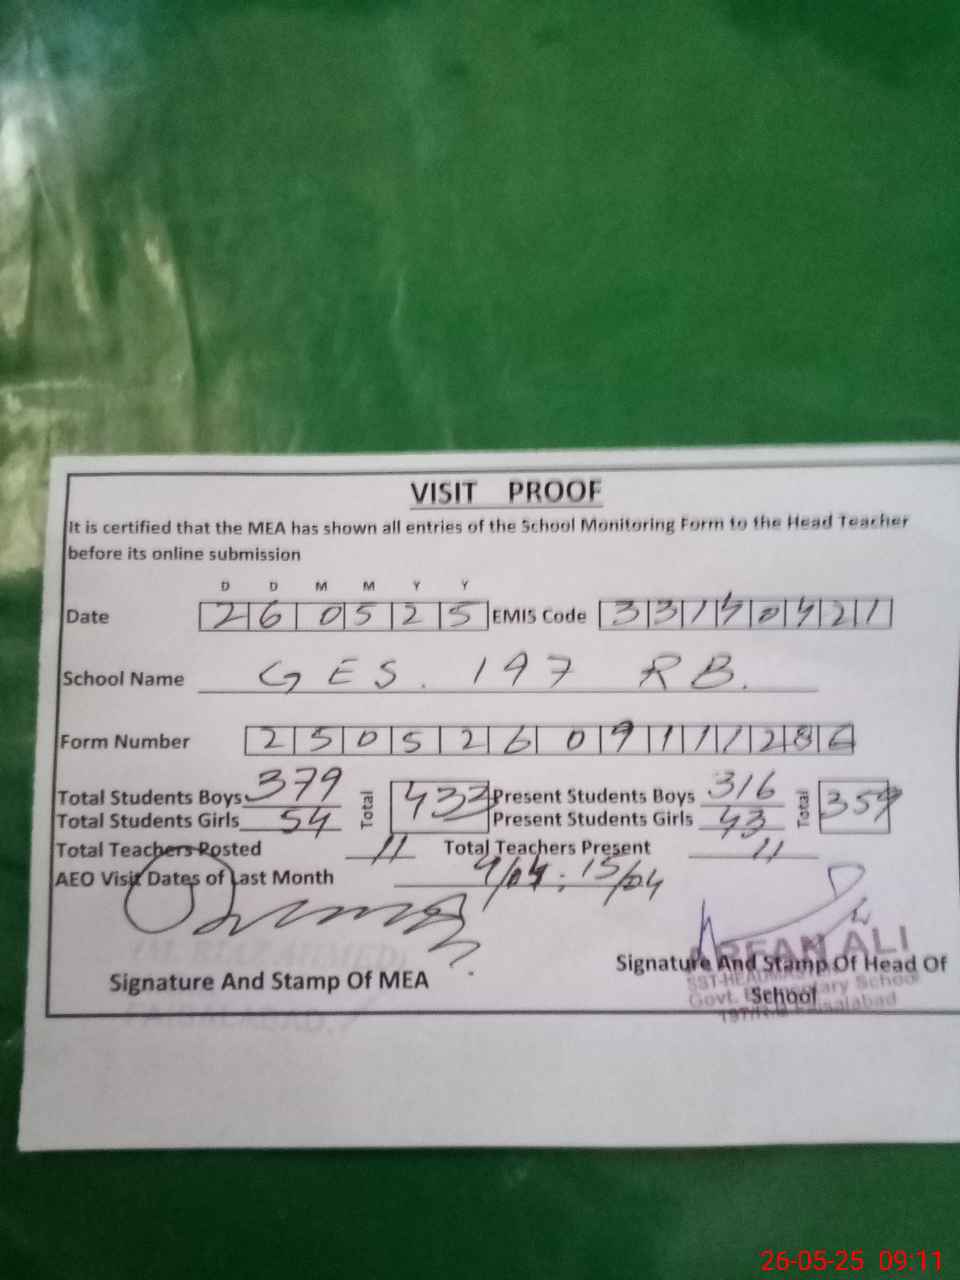 VISIT PROOF
It is certified that the MEA has shown all entries of the School Monitoring Form to the Head Teacher
before its online submission
D D M M Y Y
Date 26 05 25 EMIS Code 33140421
School Name GES. 197 RB.
Form Number 25052609111286
Total Students Boys 379 Total 433 Present Students Boys 316 Total 359
Total Students Girls 54 Present Students Girls 43
Total Teachers Posted 11 Total Teachers Present 11
AEO Visit Dates of Last Month 9/04 ; 15/04
(M. RIAZ AHMED)
ARFAN ALI
Signature And Stamp Of MEA Signature And Stamp Of Head Of
School
Govt. Elementary School
FAISALABAD.
197/R.B Faisalabad
26-05-25 09:11